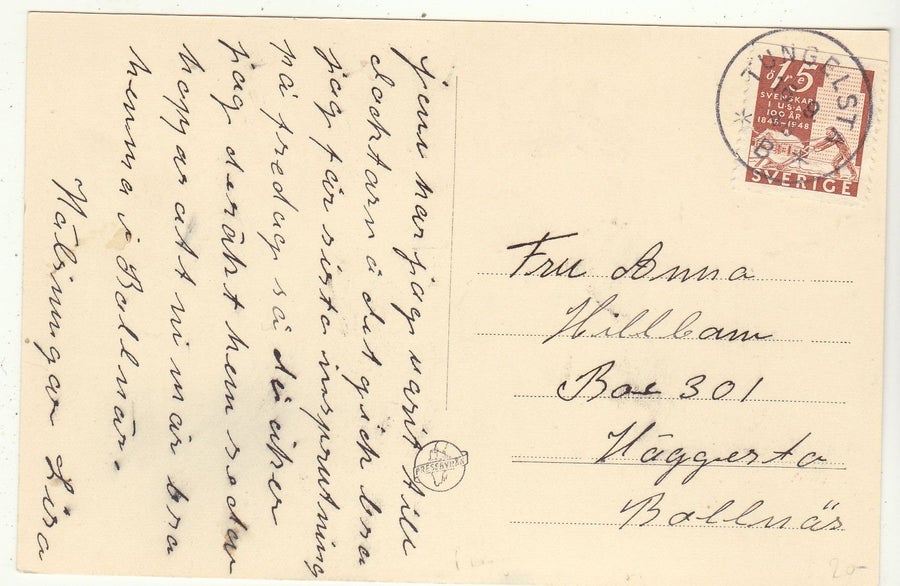 jenn har jag varit till
doctarn å det gick bra
jag får sista insprutning
på fredag så då åker
jag deräkt hem sedan
hoppas att ni mår bra
hemma i Bollnäs.
Hälsningar Lisa
TUNGELSTA
15 öre
SVENSKAR
I USA
100 ÅR
1848-1948
SVERIGE
B
Fru Anna
Hillbam
Box 301
Häggesta
Bollnäs
PRESSBYRÅN
20-